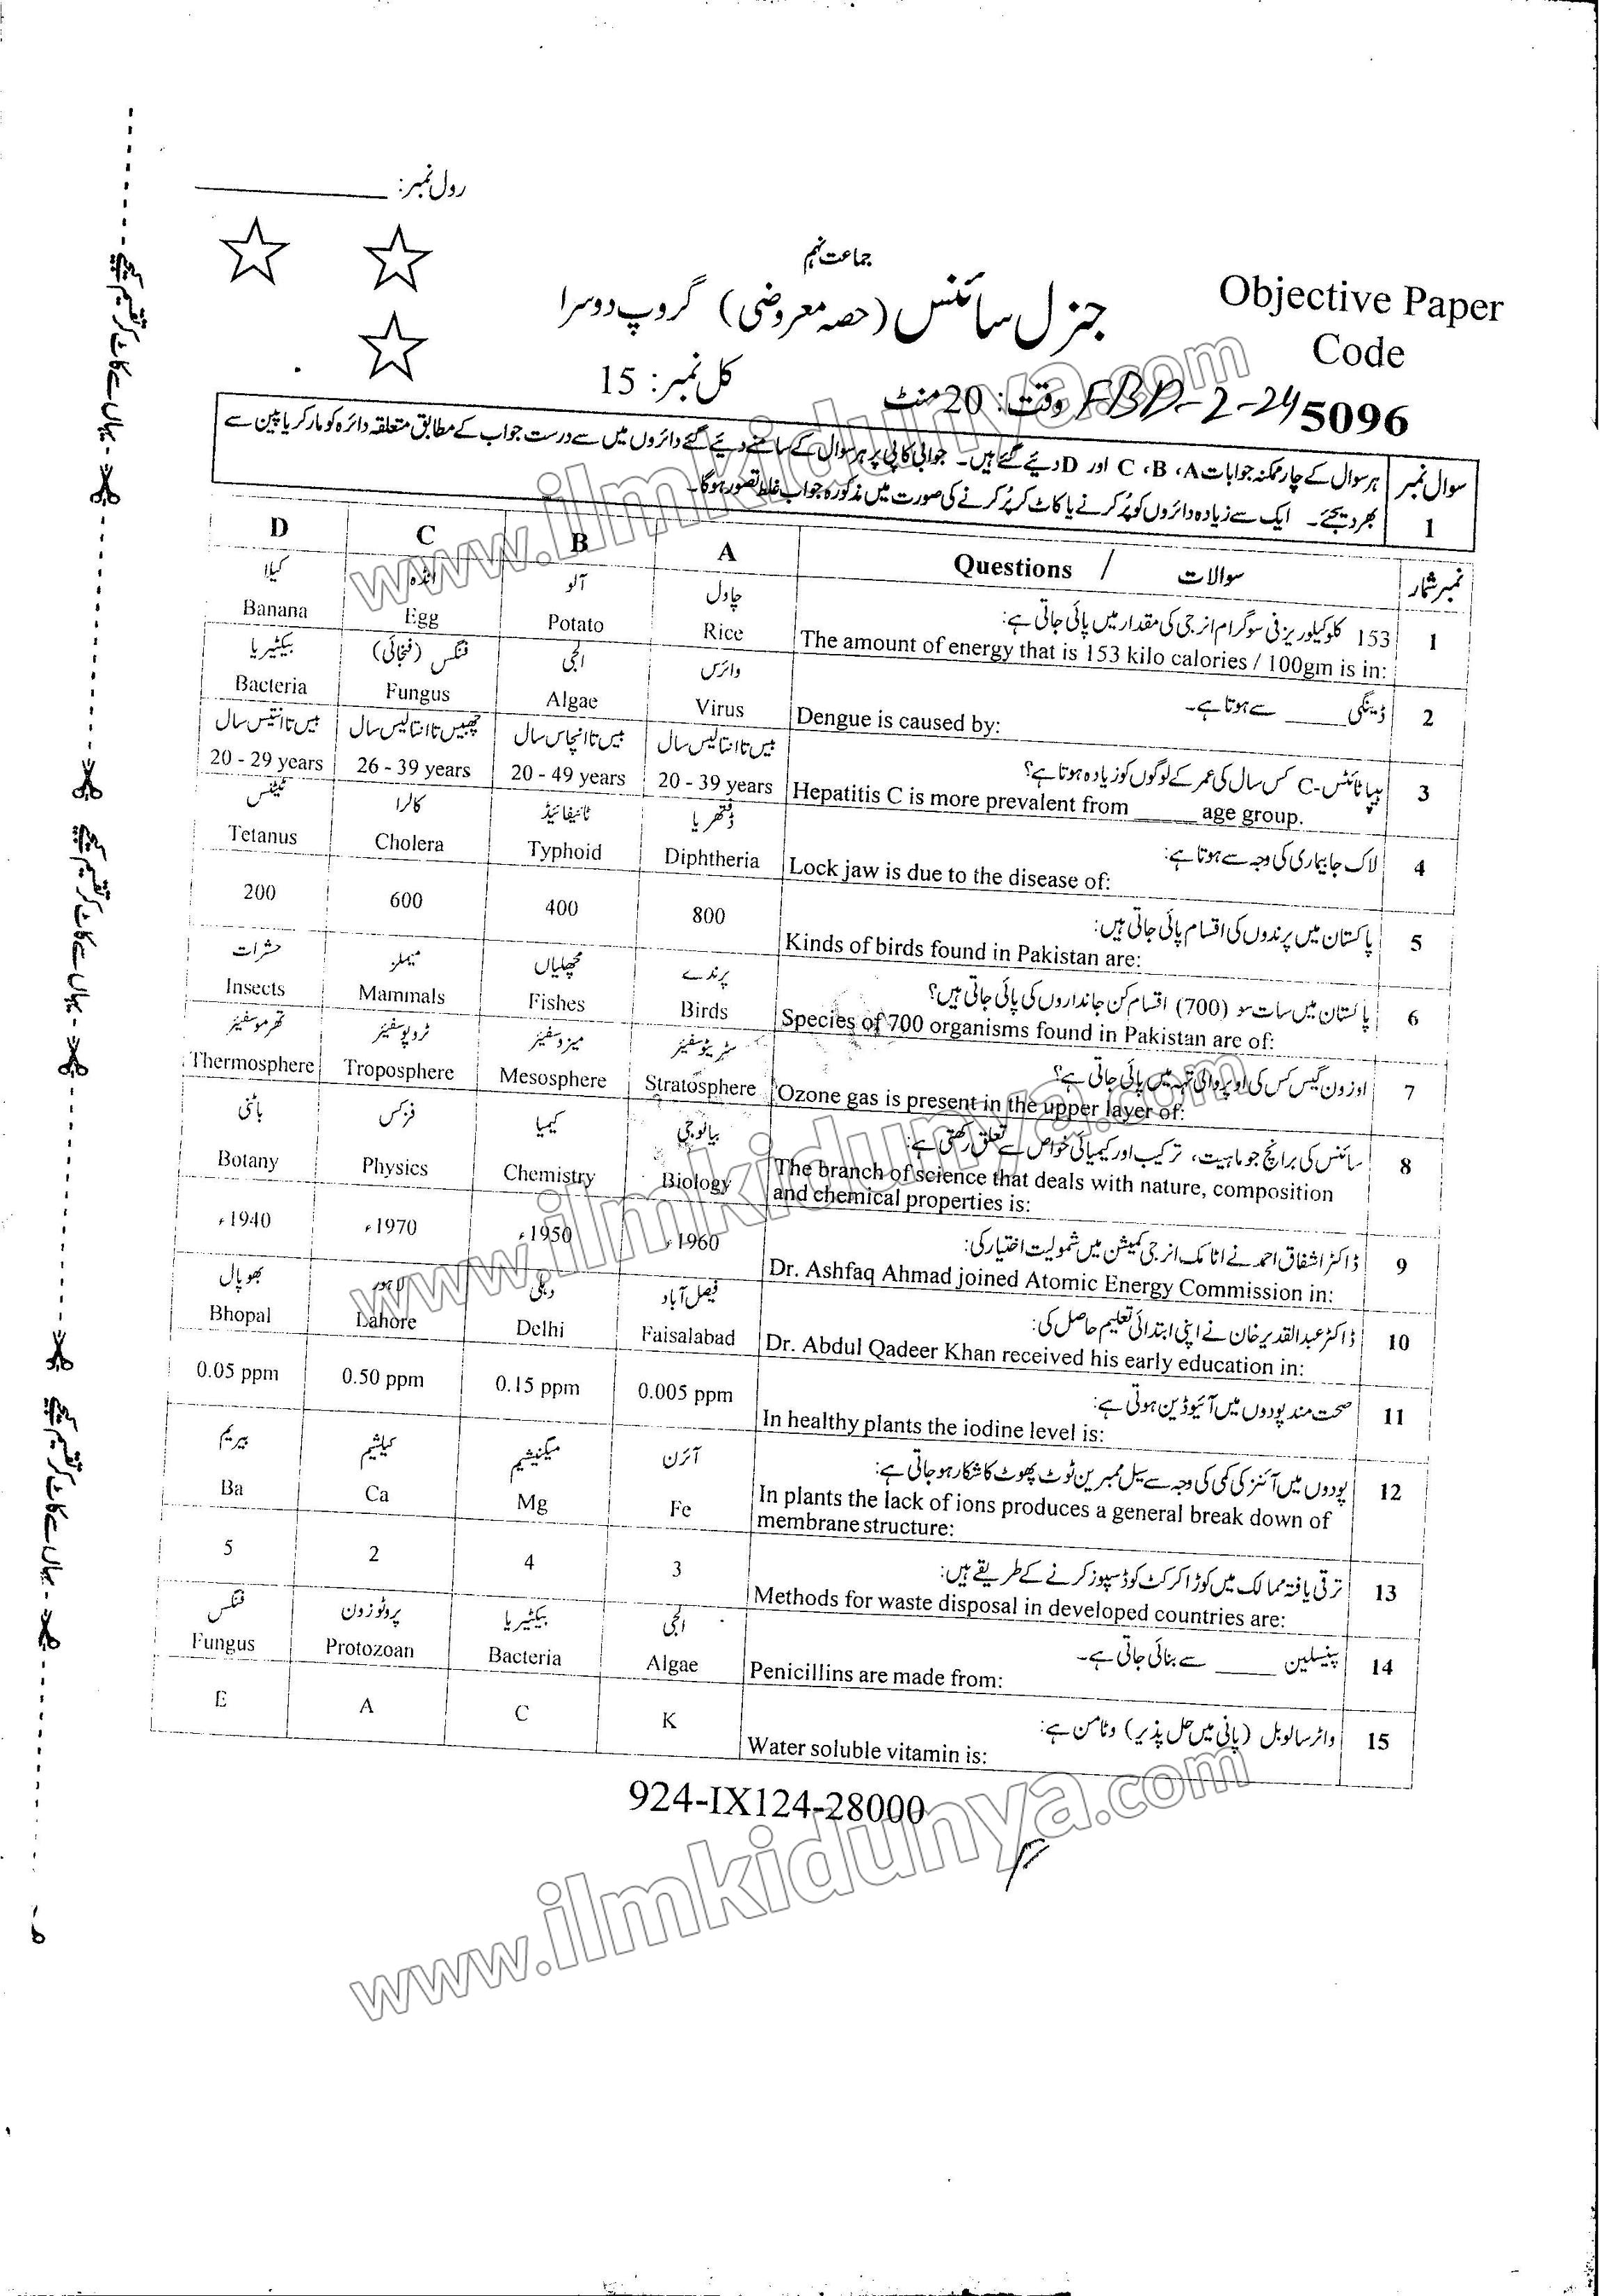 رول نمبر: ____________
جماعت نہم
جنرل سائنس (حصہ معروضی) گروپ دوسرا
Objective Paper
Code
5096
وقت: 20 منٹ
FBD-2-24
کل نمبر: 15
سوال نمبر 1
ہر سوال کے چار ممکنہ جوابات A، B، C اور D دیئے گئے ہیں۔ جوابی کاپی پر ہر سوال کے سامنے دیئے گئے دائروں میں سے درست جواب کے مطابق متعلقہ دائرہ کو مارکر یا پین سے
بھر دیجئے۔ ایک سے زیادہ دائروں کو پُر کرنے یا کاٹ کر پُر کرنے کی صورت میں مذکورہ جواب غلط تصور ہوگا۔
نمبر شمار سوالات / Questions A B C D
1 153 کلو کیلوریز فی سو گرام انرجی کی مقدار میں پائی جاتی ہے:
The amount of energy that is 153 kilo calories / 100gm is in:
چاول آلو انڈہ کیلا
Rice Potato Egg Banana
2 ڈینگی _____ سے ہوتا ہے۔
Dengue is caused by:
وائرس الجی فنگس (فنجائی) بیکٹیریا
Virus Algae Fungus Bacteria
3 ہیپاٹائٹس-C کس سال کی عمر کے لوگوں کو زیادہ ہوتا ہے؟
Hepatitis C is more prevalent from _____ age group.
بیس تا انتالیس سال بیس تا انچاس سال چھبیس تا انتالیس سال بیس تا انتیس سال
20 - 39 years 20 - 49 years 26 - 39 years 20 - 29 years
4 لاک جا بیماری کی وجہ سے ہوتا ہے:
Lock jaw is due to the disease of:
ڈفتھریا ٹائیفائیڈ کالرا ٹیٹنس
Diphtheria Typhoid Cholera Tetanus
5 پاکستان میں پرندوں کی اقسام پائی جاتی ہیں:
Kinds of birds found in Pakistan are:
800 400 600 200
6 پاکستان میں سات سو (700) اقسام کن جانداروں کی پائی جاتی ہیں؟
Species of 700 organisms found in Pakistan are of:
پرندے مچھلیاں میملز حشرات
Birds Fishes Mammals Insects
7 اوزون گیس کس کی اوپر والی تہہ میں پائی جاتی ہے؟
Ozone gas is present in the upper layer of:
سٹریٹوسفیئر میزوسفیئر ٹروپوسفیئر تھرموسفیئر
Stratosphere Mesosphere Troposphere Thermosphere
8 سائنس کی برانچ جو ماہیت، ترکیب اور کیمیائی خواص سے تعلق رکھتی ہے:
The branch of science that deals with nature, composition
and chemical properties is:
بیالوجی کیمیا فزکس باٹنی
Biology Chemistry Physics Botany
9 ڈاکٹر اشفاق احمد نے اٹامک انرجی کمیشن میں شمولیت اختیار کی:
Dr. Ashfaq Ahmad joined Atomic Energy Commission in:
1960ء 1950ء 1970ء 1940ء
10 ڈاکٹر عبدالقدیر خان نے اپنی ابتدائی تعلیم حاصل کی:
Dr. Abdul Qadeer Khan received his early education in:
فیصل آباد دہلی لاہور بھوپال
Faisalabad Delhi Lahore Bhopal
11 صحت مند پودوں میں آئیوڈین ہوتی ہے:
In healthy plants the iodine level is:
0.005 ppm 0.15 ppm 0.50 ppm 0.05 ppm
12 پودوں میں آئنز کی کمی کی وجہ سے سیل ممبرین ٹوٹ پھوٹ کا شکار ہو جاتی ہے:
In plants the lack of ions produces a general break down of
membrane structure:
آئرن میگنیشیم کیلشیم بیریم
Fe Mg Ca Ba
13 ترقی یافتہ ممالک میں کوڑا کرکٹ کو ڈسپوز کرنے کے طریقے ہیں:
Methods for waste disposal in developed countries are:
3 4 2 5
14 پنسلین _____ سے بنائی جاتی ہے۔
Penicillins are made from:
الجی بیکٹیریا پروٹوزون فنگس
Algae Bacteria Protozoan Fungus
15 واٹر سالوبل (پانی میں حل پذیر) وٹامن ہے:
Water soluble vitamin is:
K C A E
924-IX124-28000
یہاں سے کاٹ کر تقسیم کیجئے
یہاں سے کاٹ کر تقسیم کیجئے
یہاں سے کاٹ کر تقسیم کیجئے
www.ilmkidunya.com
www.ilmkidunya.com
www.ilmkidunya.com